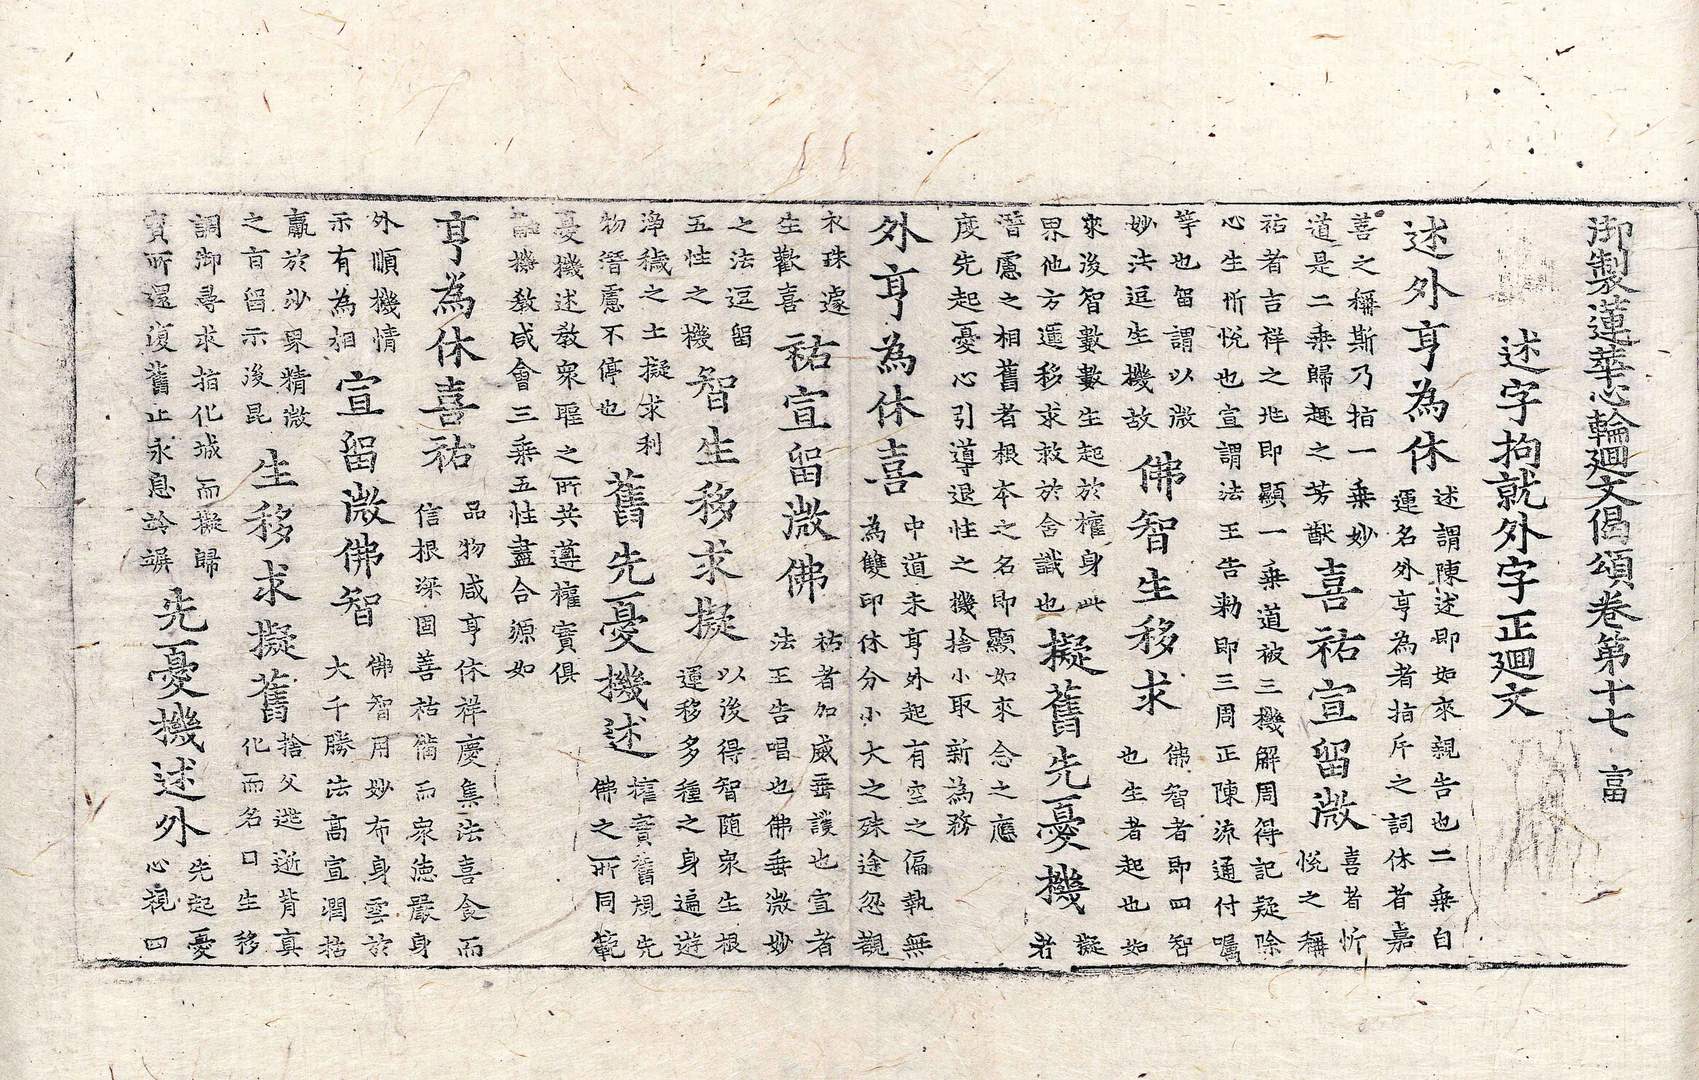 御製蓮華心輪廻文偈頌卷第十七 富
述字拘就外字正廻文
述外亨為休 述謂陳述即如來親告也二乗自
運名外亨為者指斥之詞休者嘉
善之稱斯乃指一乗妙
道是二乗歸趣之芳猷 喜祐宣留微 喜者忻
悅之稱
祐者吉祥之兆即顯一乗道被三機解周得記疑除
心生所悅也宣謂法王告勑即三周正陳流通付囑
等也留謂以微
妙法逗生機故 佛智生移求 佛智者即四智
也生者起也如
來後智數數生起於權身此
界他方遷移求救於含識也 擬舊先憂機 擬
者
潛慮之相舊者根本之名即顯如來念之應
度先起憂心引導退性之機捨小取新為務
外亨為休喜 中道未亨外起有空之偏執無
為雙印休分小大之殊途忽覩
衣珠遽
生歡喜 祐宣留微佛 祐者加威垂護也宣者
法王告唱也佛垂微妙
之法逗留
五性之機 智生移求擬 以後得智随衆生根
運移多種之身遍遊
淨穢之土擬求利
物潛慮不停也 舊先憂機述 權實舊規先
佛之所同範
憂機述教衆聖之所共遵權實俱
融機教咸會三乗五性盡合源如
亨為休喜祐 品物咸亨休祥慶集法喜食而
信根深固善祐備而衆德嚴身
外順機情
示有為相 宣留微佛智 佛智用妙布身雲於
大千勝法高宣潤枯
羸於沙界精微
之旨留示後昆 生移求擬舊 捨父逃逝背真
化而名曰生移
調御尋求指化城而擬歸
寶所還復舊止永息竛竮 先憂機述外 先起憂
心視四